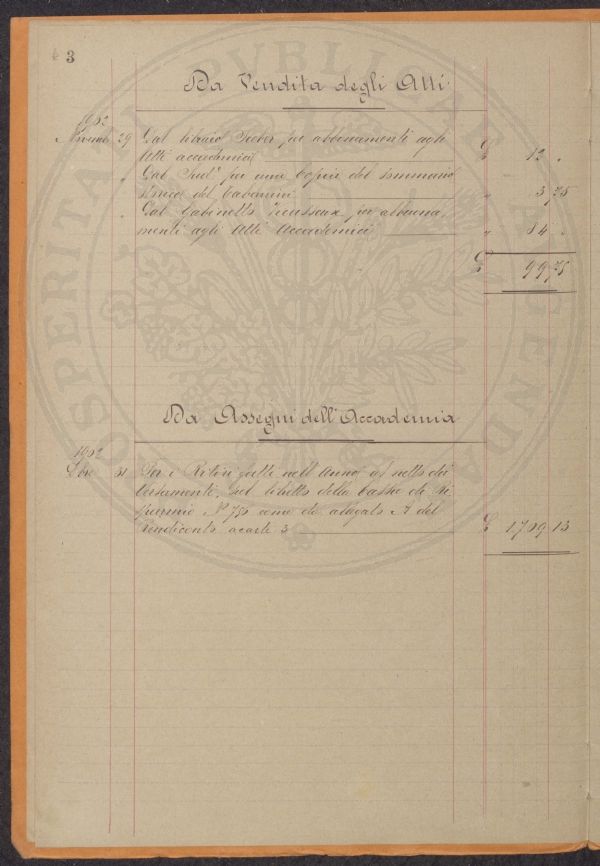 3
Da Vendita degli Atti
1902
Novemb. 29 Dal libraio Seeber per abbonamenti agli
Atti accademici £ 12 "
" Dal Sud.° per una Copia del Sommario
Storico del Tabarrini " 3,75
" Dal Gabinetto Vieusseux per abbuona
menti agli Atti Accademici " 84 "
£ 99,75
Da Assegni dell'Accademia
1902
Xbre 31 Per i Ritiri fatti nell'anno al netto dei
Versamenti, sul libretto della Cassa di Ri
sparmio N° 750 come da allegato A del
Rendiconto a carte 3 £ 1709 13
PVBLICAE
PROSPERITATI
AVGENDAE